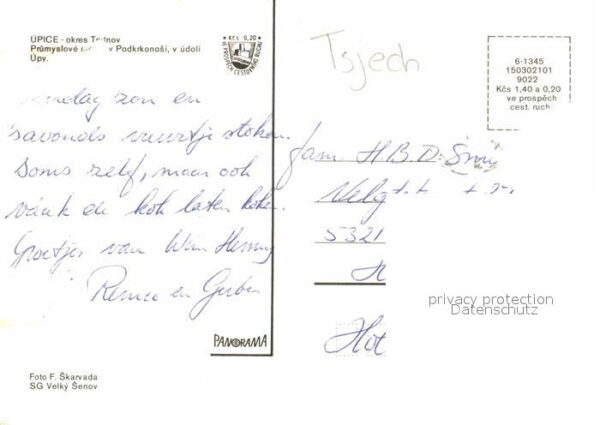 ÚPICE - okres Trutnov
Průmyslové v Podkrkonoší, v údolí
Úpy.
Kčs 0,20
VE PROSPĚCH CESTOVNÍHO RUCHU
Tsjech
6-1345
150302101
9022
Kčs 1,40 a 0,20
ve prospěch
cest. ruch
zon en
savonds vuurtje stoken.
Soms zelf, maar ook
vaak de kok laten koken.
Groetjes van Wim Henny
en
fam. H.B.D.
5321
H
Hot
privacy protection
Datenschutz
PANORAMA
Foto F. Škarvada
SG Velký Šenov